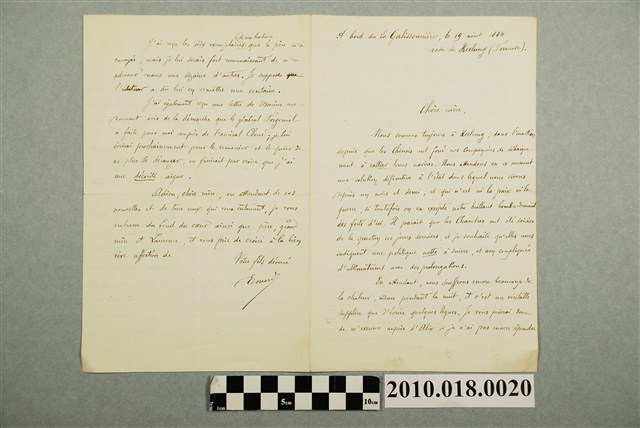 A bord de la Galissonnière, le 19 août 1884
rade de Keelung (Formose)
Chère mère,
Nous sommes toujours à Keelung, dans l'inaction
depuis que les Chinois ont forcé nos compagnies de débarque-
ment à rallier leurs navires. Nous attendons en ce moment
une solution définitive à l'état dans lequel nous vivons
depuis un mois et demi, et qui n'est ni la paix ni la
guerre, si toutefois on en excepte notre brillant bombardement
des forts d'ici. Il paraît que les Chambres ont été saisies
de la question ces jours derniers, et je souhaite qu'elles nous
indiquent une politique nette à suivre, et non compliquée
d'ultimatums avec des prolongations.
En attendant, nous souffrons encore beaucoup de
la chaleur, même pendant la nuit, et c'est un véritable
supplice que d'écrire quelques lignes. Je vous prierai donc
de m'excuser auprès d'Alix si je n'ai pas encore répondu
J'ai reçu les dix exemplaires que le père m'a
envoyés, mais je lui serais fort reconnaissant de m'en
adresser encore une dizaine d'autres. Je suppose que
l'éditeur a dû lui en remettre une centaine.
J'ai également reçu une lettre de
de la démarche que le général Forgemol
a faite pour moi auprès de l'amiral ; je lui
écrirai prochainement pour le remercier et le prier de
ne plus le déranger, on finirait par croire que j'ai
une décorite aigue.
Adieu, chère mère, en attendant de vos
nouvelles et de tous ceux qui vous entourent, je vous
embrasse du fond du cœur ainsi que père, grand
mère et Laurence, et vous prie de croire à la bien
vive affection de
Votre fils dévoué
1cm
5cm
10cm
2010.018.0020